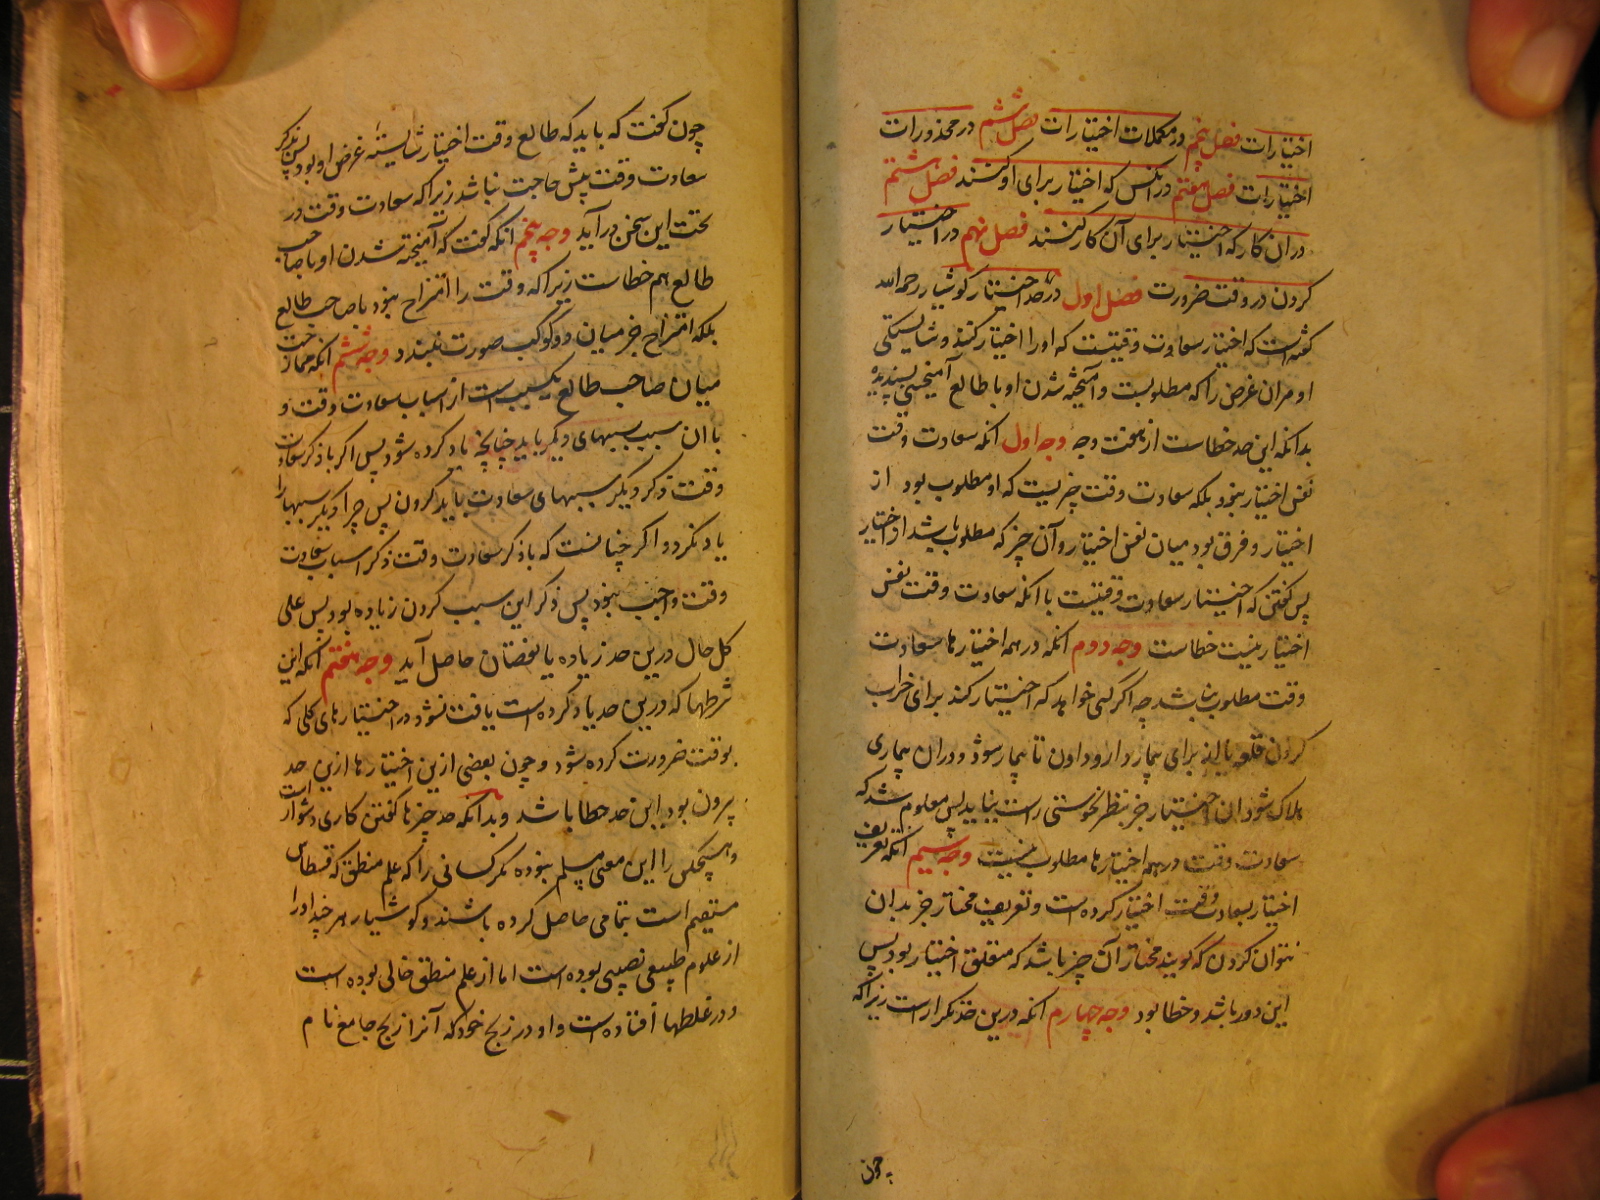 اختیارات فصل پنجم در مکملات اختیارات فصل ششم در محذورات
اختیارات فصل هفتم در انکس که اختیار برای او کنند فصل هشتم
در ان کار که اختیار برای آن کار کنند فصل نهم در اختیار
کردن در وقت ضرورت فصل اول در حد اختیار کوشیار رحمه الله
کفته است که اختیار سعادت وقتیست که او را اختیار کنند و شایستکی
او مران غرض را که مطلوبست و آمیخته شدن او با طالع آمیختنی پسندیده
بدانکه این حد خطاست از هفت وجه وجه اول انکه سعادت وقت
نفس اختیار نبود بلکه سعادت وقت چیزیست که او مطلوب بود از
اختیار و فرق بود میان نفس اختیار و آن چیز که مطلوب باشد از اختیار
پس کفتن که اختیار سعادت وقتیست با انکه سعادت وقت نفس
اختیار نیست خطاست وجه دوم انکه در همه اختیارها سعادت
وقت مطلوب نباشد چه اکر کسی خواهد که اختیار کند برای خراب
کردن قلعه یا برای بیمار دارو دادن تا بیمار شود و در ان بیماری
هلاک شود ان اختیار جز بنظر نحوستی راست نیاید پس معلوم شد که
سعادت وقت در همه اختیارها مطلوب نیست وجه سیم انکه تعریف
اختیار بسعادت وقت اختیار کرده است و تعریف مختار جز بدان
نتوان کردن که کویند مختار آن چیز باشد که متعلق اختیار بود پس
این دور باشد و خطا بود وجه چهارم انکه درین حد تکرار است زیرا که
چون
چون کفت که باید که طالع وقت اختیار شایسته غرض او بود پس بذکر
سعادت وقت پیش حاجت نباشد زیرا که سعادت وقت در
تحت این سخن در آید وجه پنجم انکه کفت که آمیخته شدن او با صاحب
طالع هم خطاست زیرا که وقت را امتزاج نبود با صاحب طالع
بلکه امتزاج جز میان دو کوکب صورت نبندد وجه ششم انکه ممازجت
میان صاحب طالع یک سبب است از اسباب سعادت وقت و
با ان سبب سببهای دیکر باید چنانچه یاد کرده شود پس اکر با ذکر سعادت
وقت ذکر دیکر سببهای سعادت باید کردن پس چرا دیکر سببها را
یاد نکرد و اکر چنانست که با ذکر سعادت وقت ذکر اسباب سعادت
وقت واجب نبود پس ذکر این سبب کردن زیاده بود پس علی
کل حال درین حد زیاده یا نقصان حاصل آید وجه هفتم انکه این
شرطها که درین حد یاد کرده است یافت نشود در اختیارهای کلی که
بوقت ضرورت کرده شود و چون بعضی ازین اختیارها ازین حد
بیرون بود این حد خطا باشد و بدانکه حد چیزها کفتن کاری دشوار است
و هیچکس را این معنی مسلم نبوده مکر کسانی را که علم منطق که قسطاس
مستقیم است بتمامی حاصل کرده باشند و کوشیار هر چند او را
از علوم طبیعی نصیبی بوده است اما از علم منطق خالی بوده است
و در غلطها افتاده است و او در زیج خود که آنرا زیج جامع نام